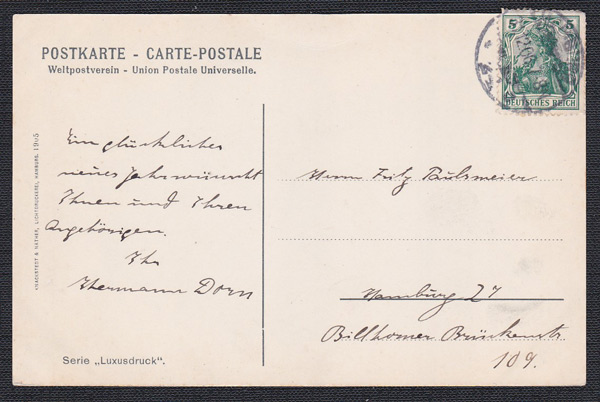 POSTKARTE - CARTE-POSTALE
Weltpostverein - Union Postale Universelle.
5 5
DEUTSCHES REICH
KNACKSTEDT & NÄTHER, LICHTDRUCKEREI, HAMBURG. 1905
Ein glückliches
neues Jahr wünscht
Ihnen und Ihren
Angehörigen.
Ihr
Hermann Dorn
Herrn Fritz Paulsmeier
Hamburg 27
Billhorner Brückenstr
109.
Serie „Luxusdruck".